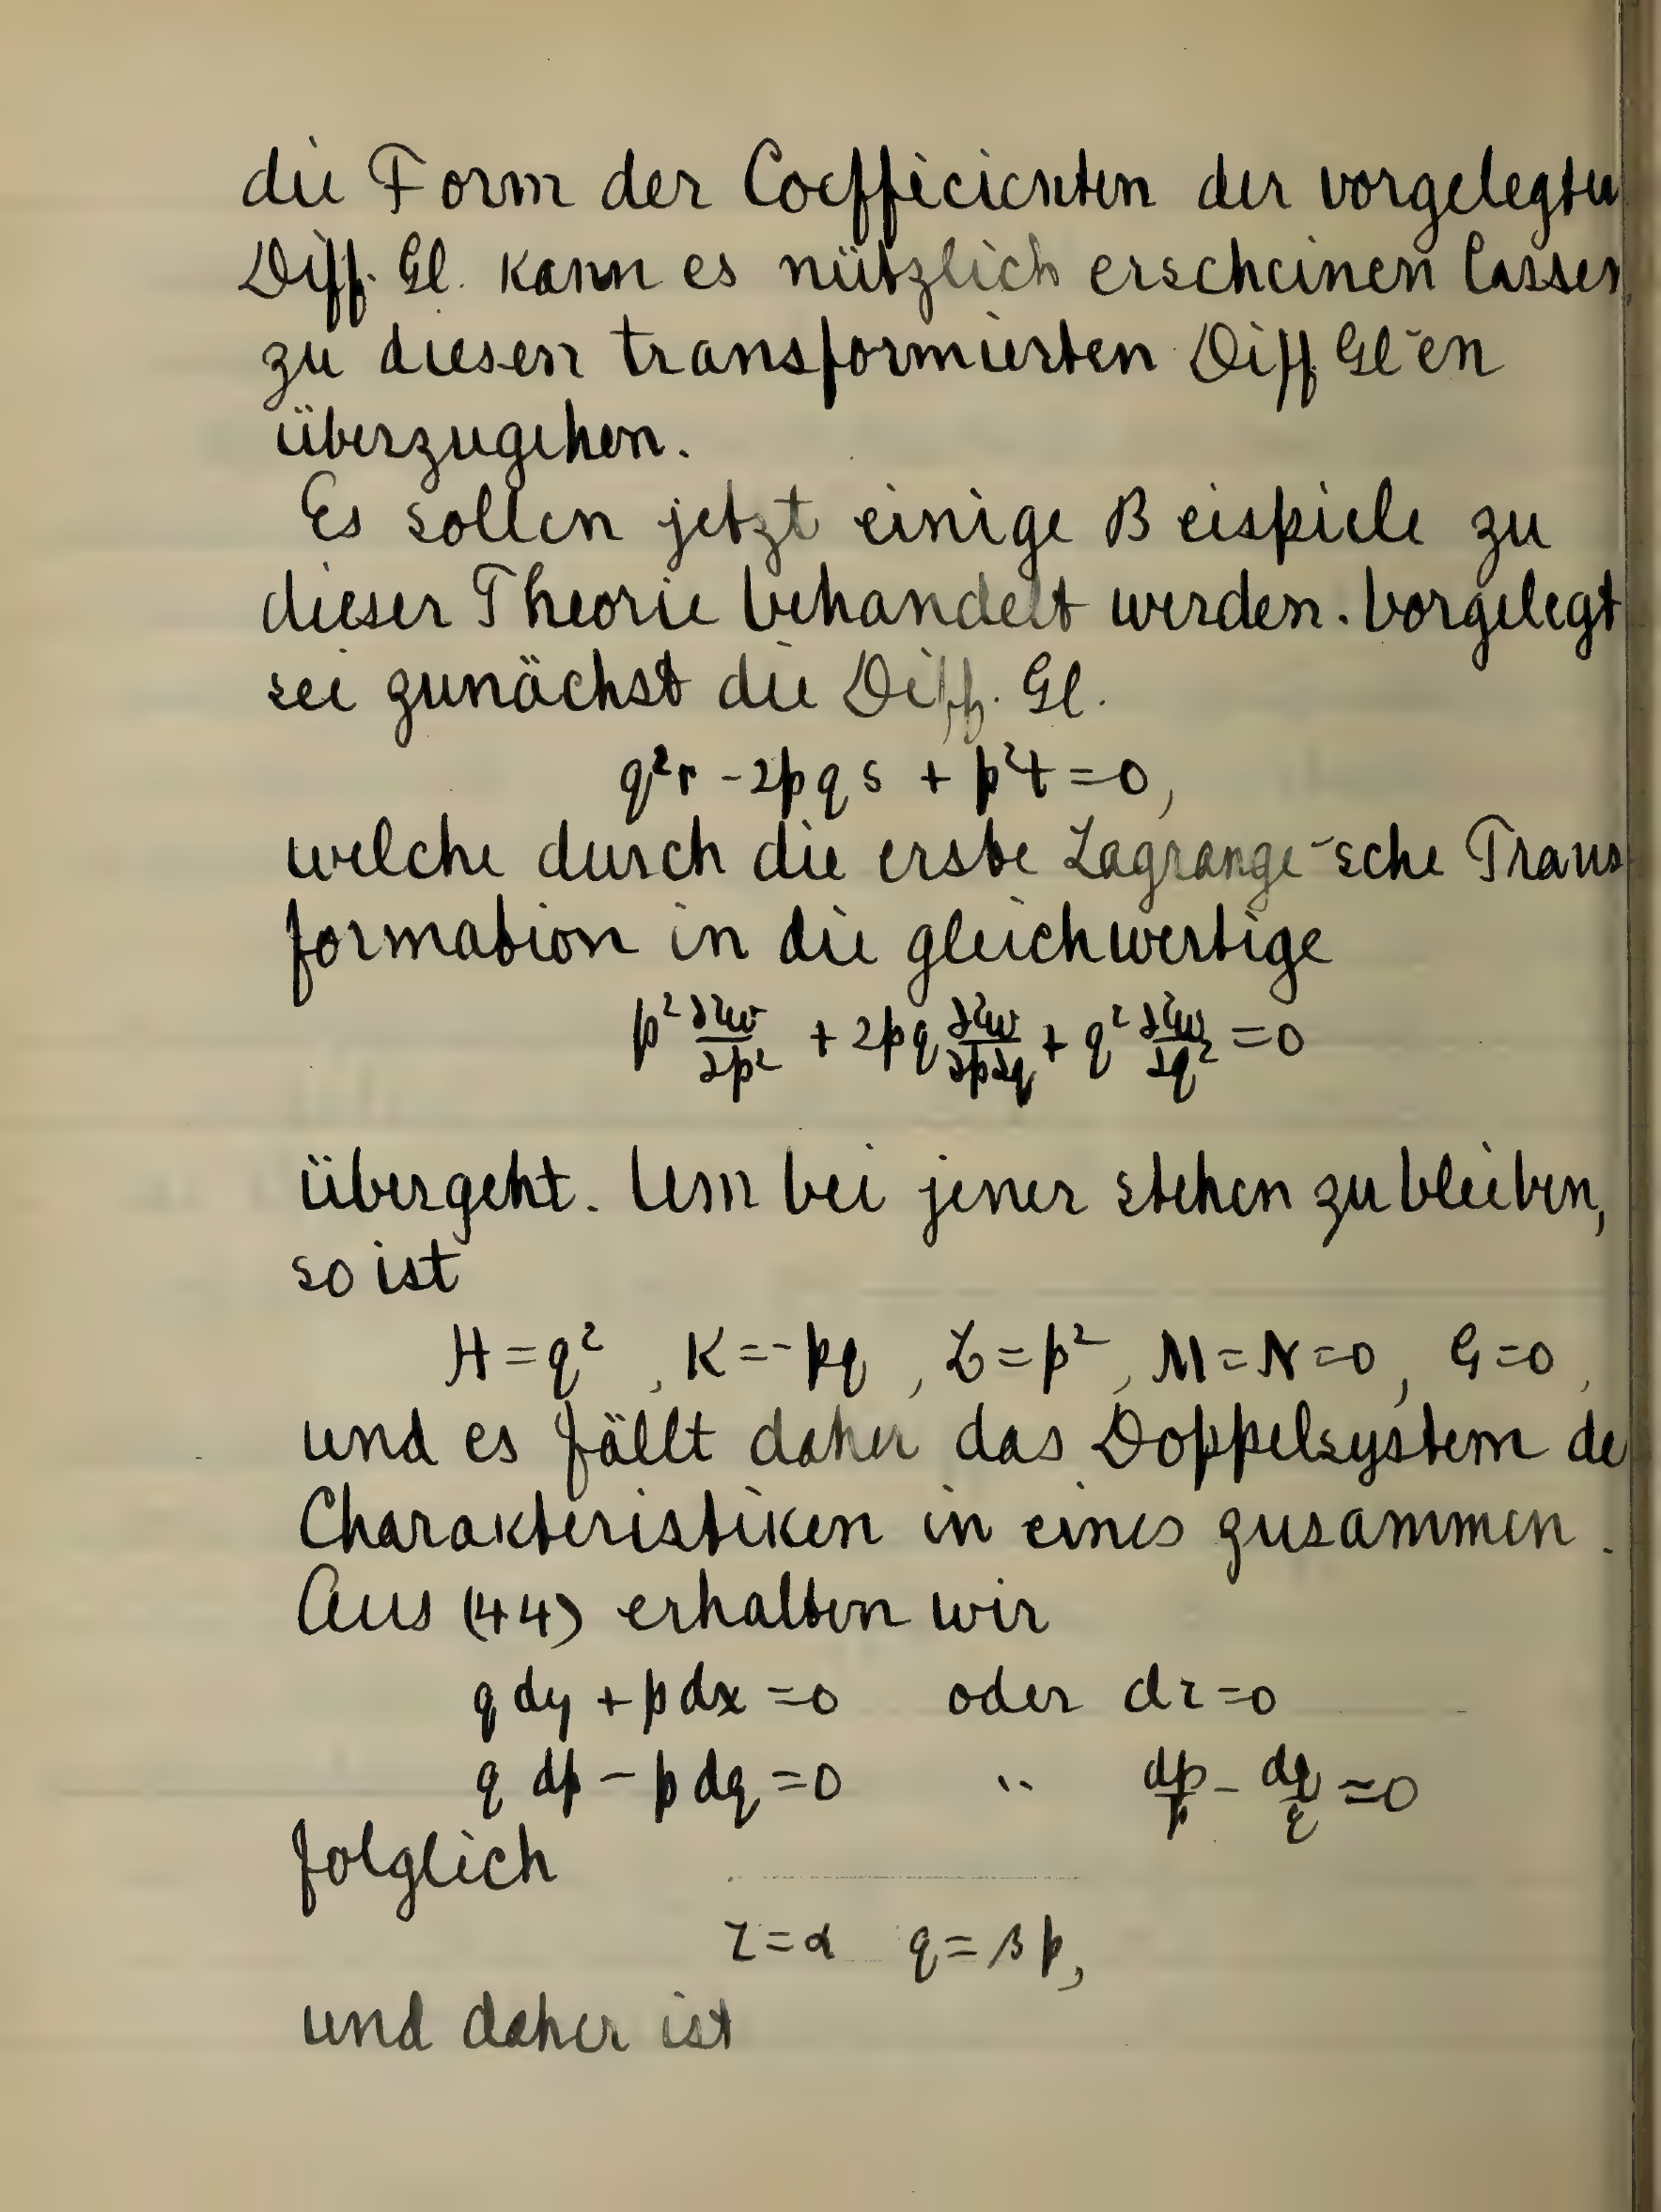 die Form der Coefficienten der vorgelegten
Diff. Gl. kann es nützlich erscheinen lassen,
zu diesen transformierten Diff Gl-en
überzugehen.
Es sollen jetzt einige Beispiele zu
dieser Theorie behandelt werden. Vorgelegt
sei zunächst die Diff. Gl.
q²r - 2pqs + p²t = 0,
welche durch die erste Lagrange-sche Trans
formation in die gleichwertige
p² ∂²w/∂p² + 2pq ∂²w/∂p∂q + q² ∂²w/∂q² = 0
übergeht. Um bei jener stehen zu bleiben,
so ist
H = q², K = -pq, L = p², M = N = 0, G = 0,
und es fällt daher das Doppelsystem de
Charakteristiken in eines zusammen.
Aus (44) erhalten wir
q dy + p dx = 0 oder dz = 0
q dp - p dq = 0 " dp/p - dq/q = 0
folglich
z = α q = βp,
und daher ist